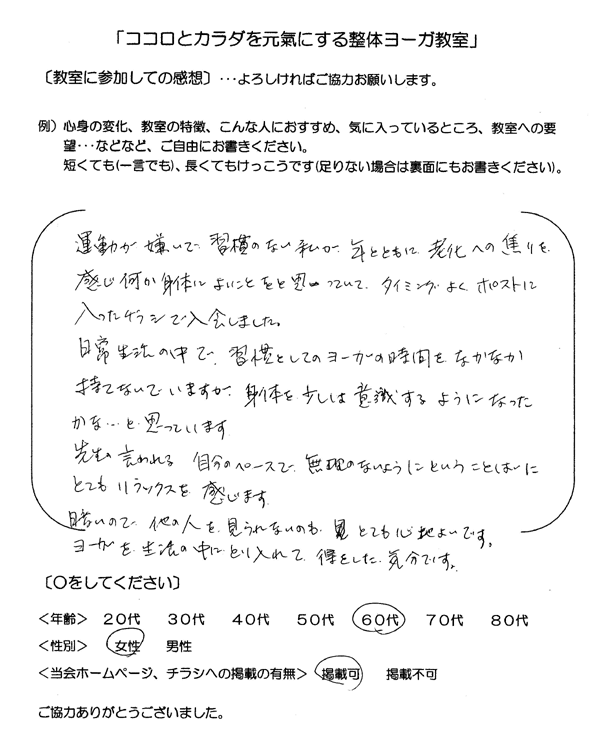 「ココロとカラダを元氣にする整体ヨーガ教室」
〔教室に参加しての感想〕・・・よろしければご協力お願いします。
例）心身の変化、教室の特徴、こんな人におすすめ、気に入っているところ、教室への要
望・・・などなど、ご自由にお書きください。
短くても(一言でも)、長くてもけっこうです(足りない場合は裏面にもお書きください)。
運動が嫌いで、習慣のない私が、年とともに老化への焦りを
感じ何か身体によいことをと思っていて、タイミングよくポストに
入ったチラシで入会しました。
日常生活の中で、習慣としてのヨーガの時間をなかなか
持てないでいますが、身体を少しは意識するようになった
かな…と思っています
先生の言われる 自分のペースで、無理のないようにということばに
とてもリラックスを感じます
暗いので、他の人を見られないのも、とても心地よいです。
ヨーガを生活の中にとり入れて、得をした気分です。
〔〇をしてください〕
＜年齢＞ 20代 30代 40代 50代 60代 70代 80代
＜性別＞ 女性 男性
＜当会ホームページ、チラシへの掲載の有無＞ 掲載可 掲載不可
ご協力ありがとうございました。